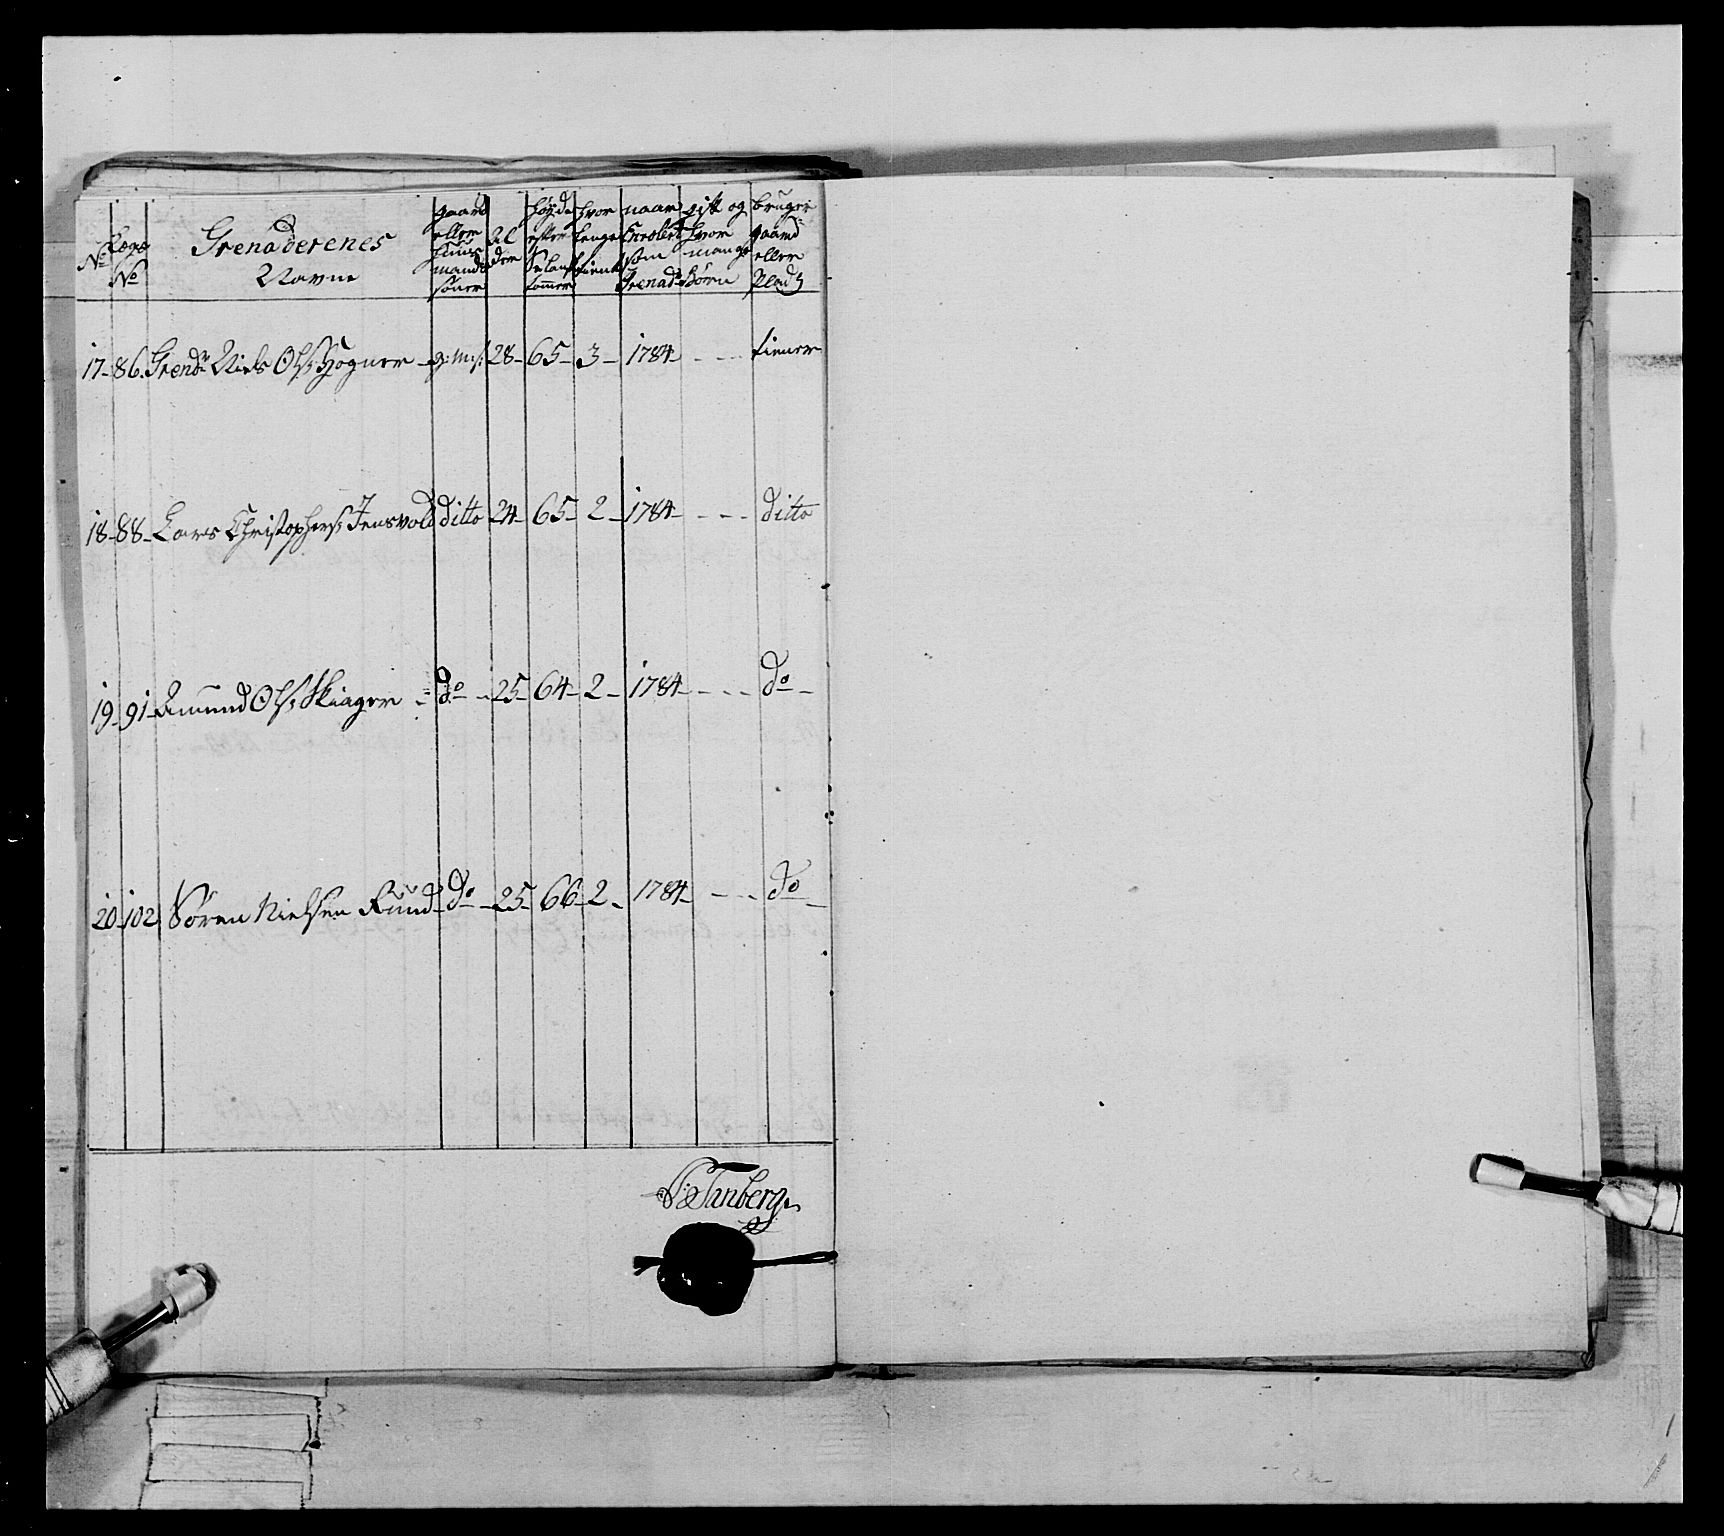 No Lægs No Grenaderenes Navne gaard eller Huus mands sönner Al der höyde efter tommer hvor lenge tient naar Enrolert som Grenadr gift og hvor mange Börn bruger gaard eller Plads
17 - 86. Grendr Niels Ols: Hogner - g: m: s: 28 - 65 - 3 - 1784 - - - tiener
18 - 88 - Lars Christophers: Jensvold ditto 24 - 65 - 2 - 1784 - - - ditto
19 - 91 - Amund Ols: Skiager - do - 25 - 64 - 2 - 1784 - - - do -
20 - 102 Sören Nielsen Rund - do - 25 - 66 - 2 - 1784 - - - do -
Tanberg